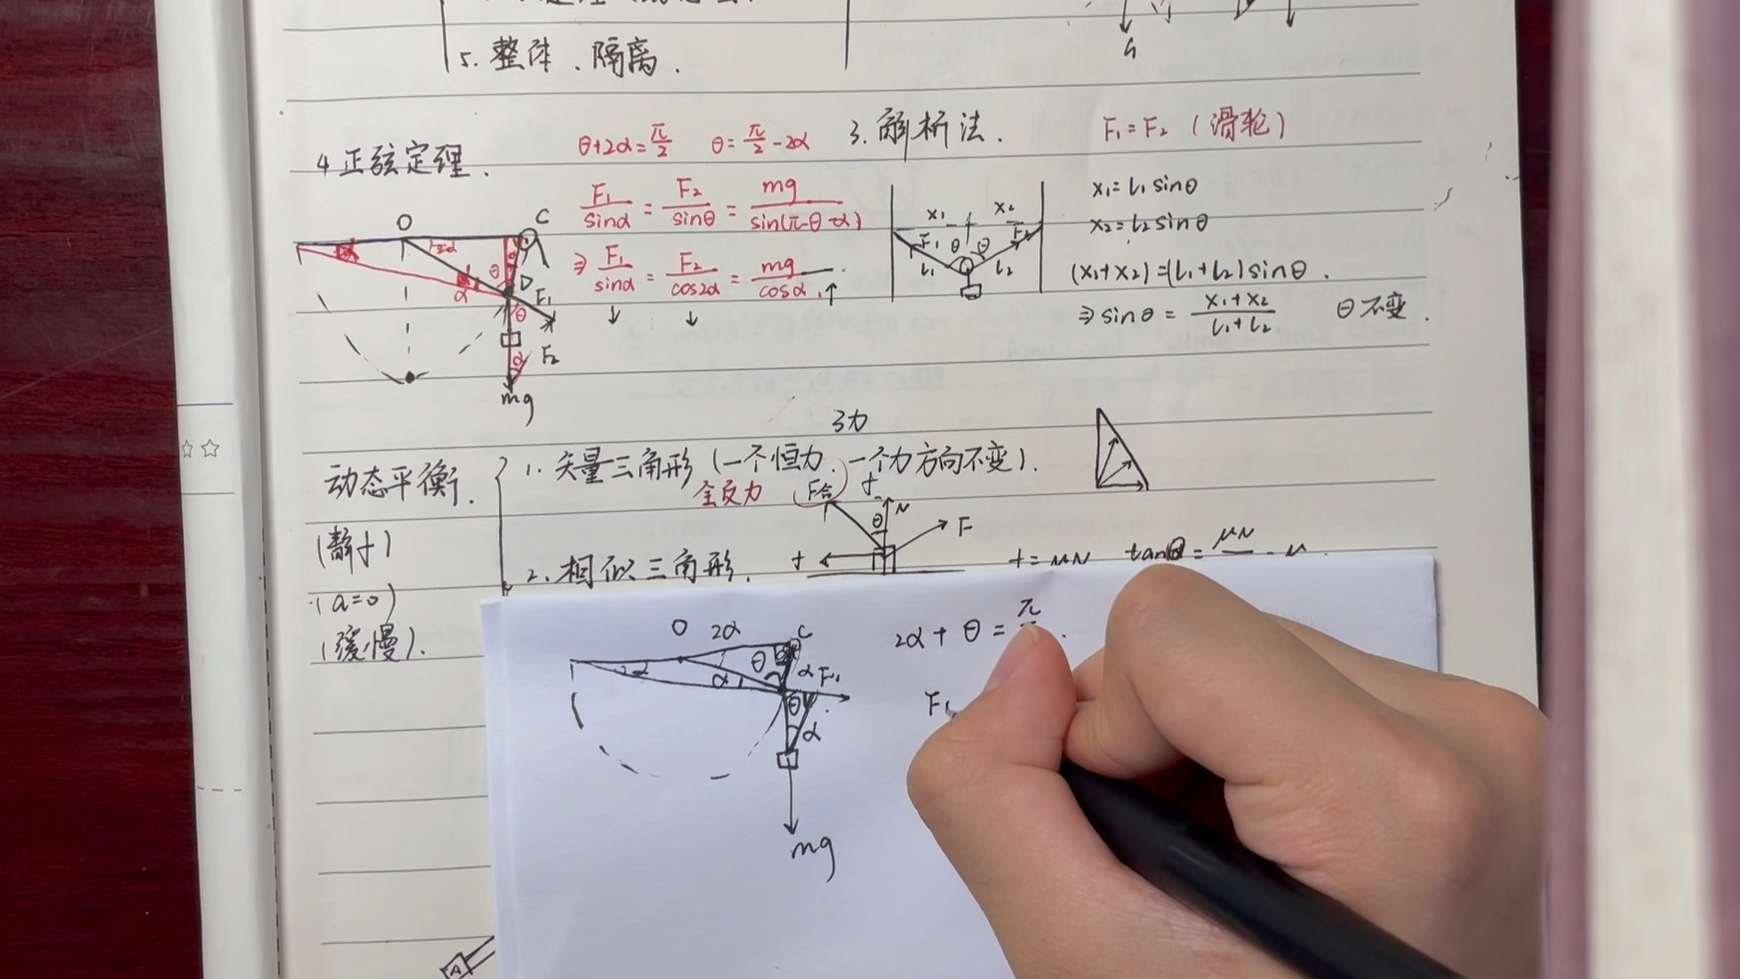 5. 整体、隔离.
G
4 正弦定理.
θ+2α=π/2 θ=π/2-2α
F₁/sinα = F₂/sinθ = mg/sin(π-θ-α)
⇒ F₁/sinα = F₂/cos2α = mg/cosα ↑
↓ ↓
O C
2α
θ
α
D
F₁
θ
α
F₂
mg
3. 解析法.
F₁=F₂ (滑轮)
x₁ x₂
F₁ θ θ F₂
L₁ L₂
x₁=L₁sinθ
x₂=L₂sinθ
(x₁+x₂)=(L₁+L₂)sinθ.
⇒ sinθ = x₁+x₂/L₁+L₂ θ不变.
3力
动态平衡.
(静止)
(a=0)
(缓慢).
1. 矢量三角形 (一个恒力、一个力方向不变).
全反力 F合
θ N
F
f
2. 相似三角形.
f=μN tanθ=μN/ = μ.
O 2α C
α α θ α F₁
θ
α
mg
2α+θ=π
F₁
A